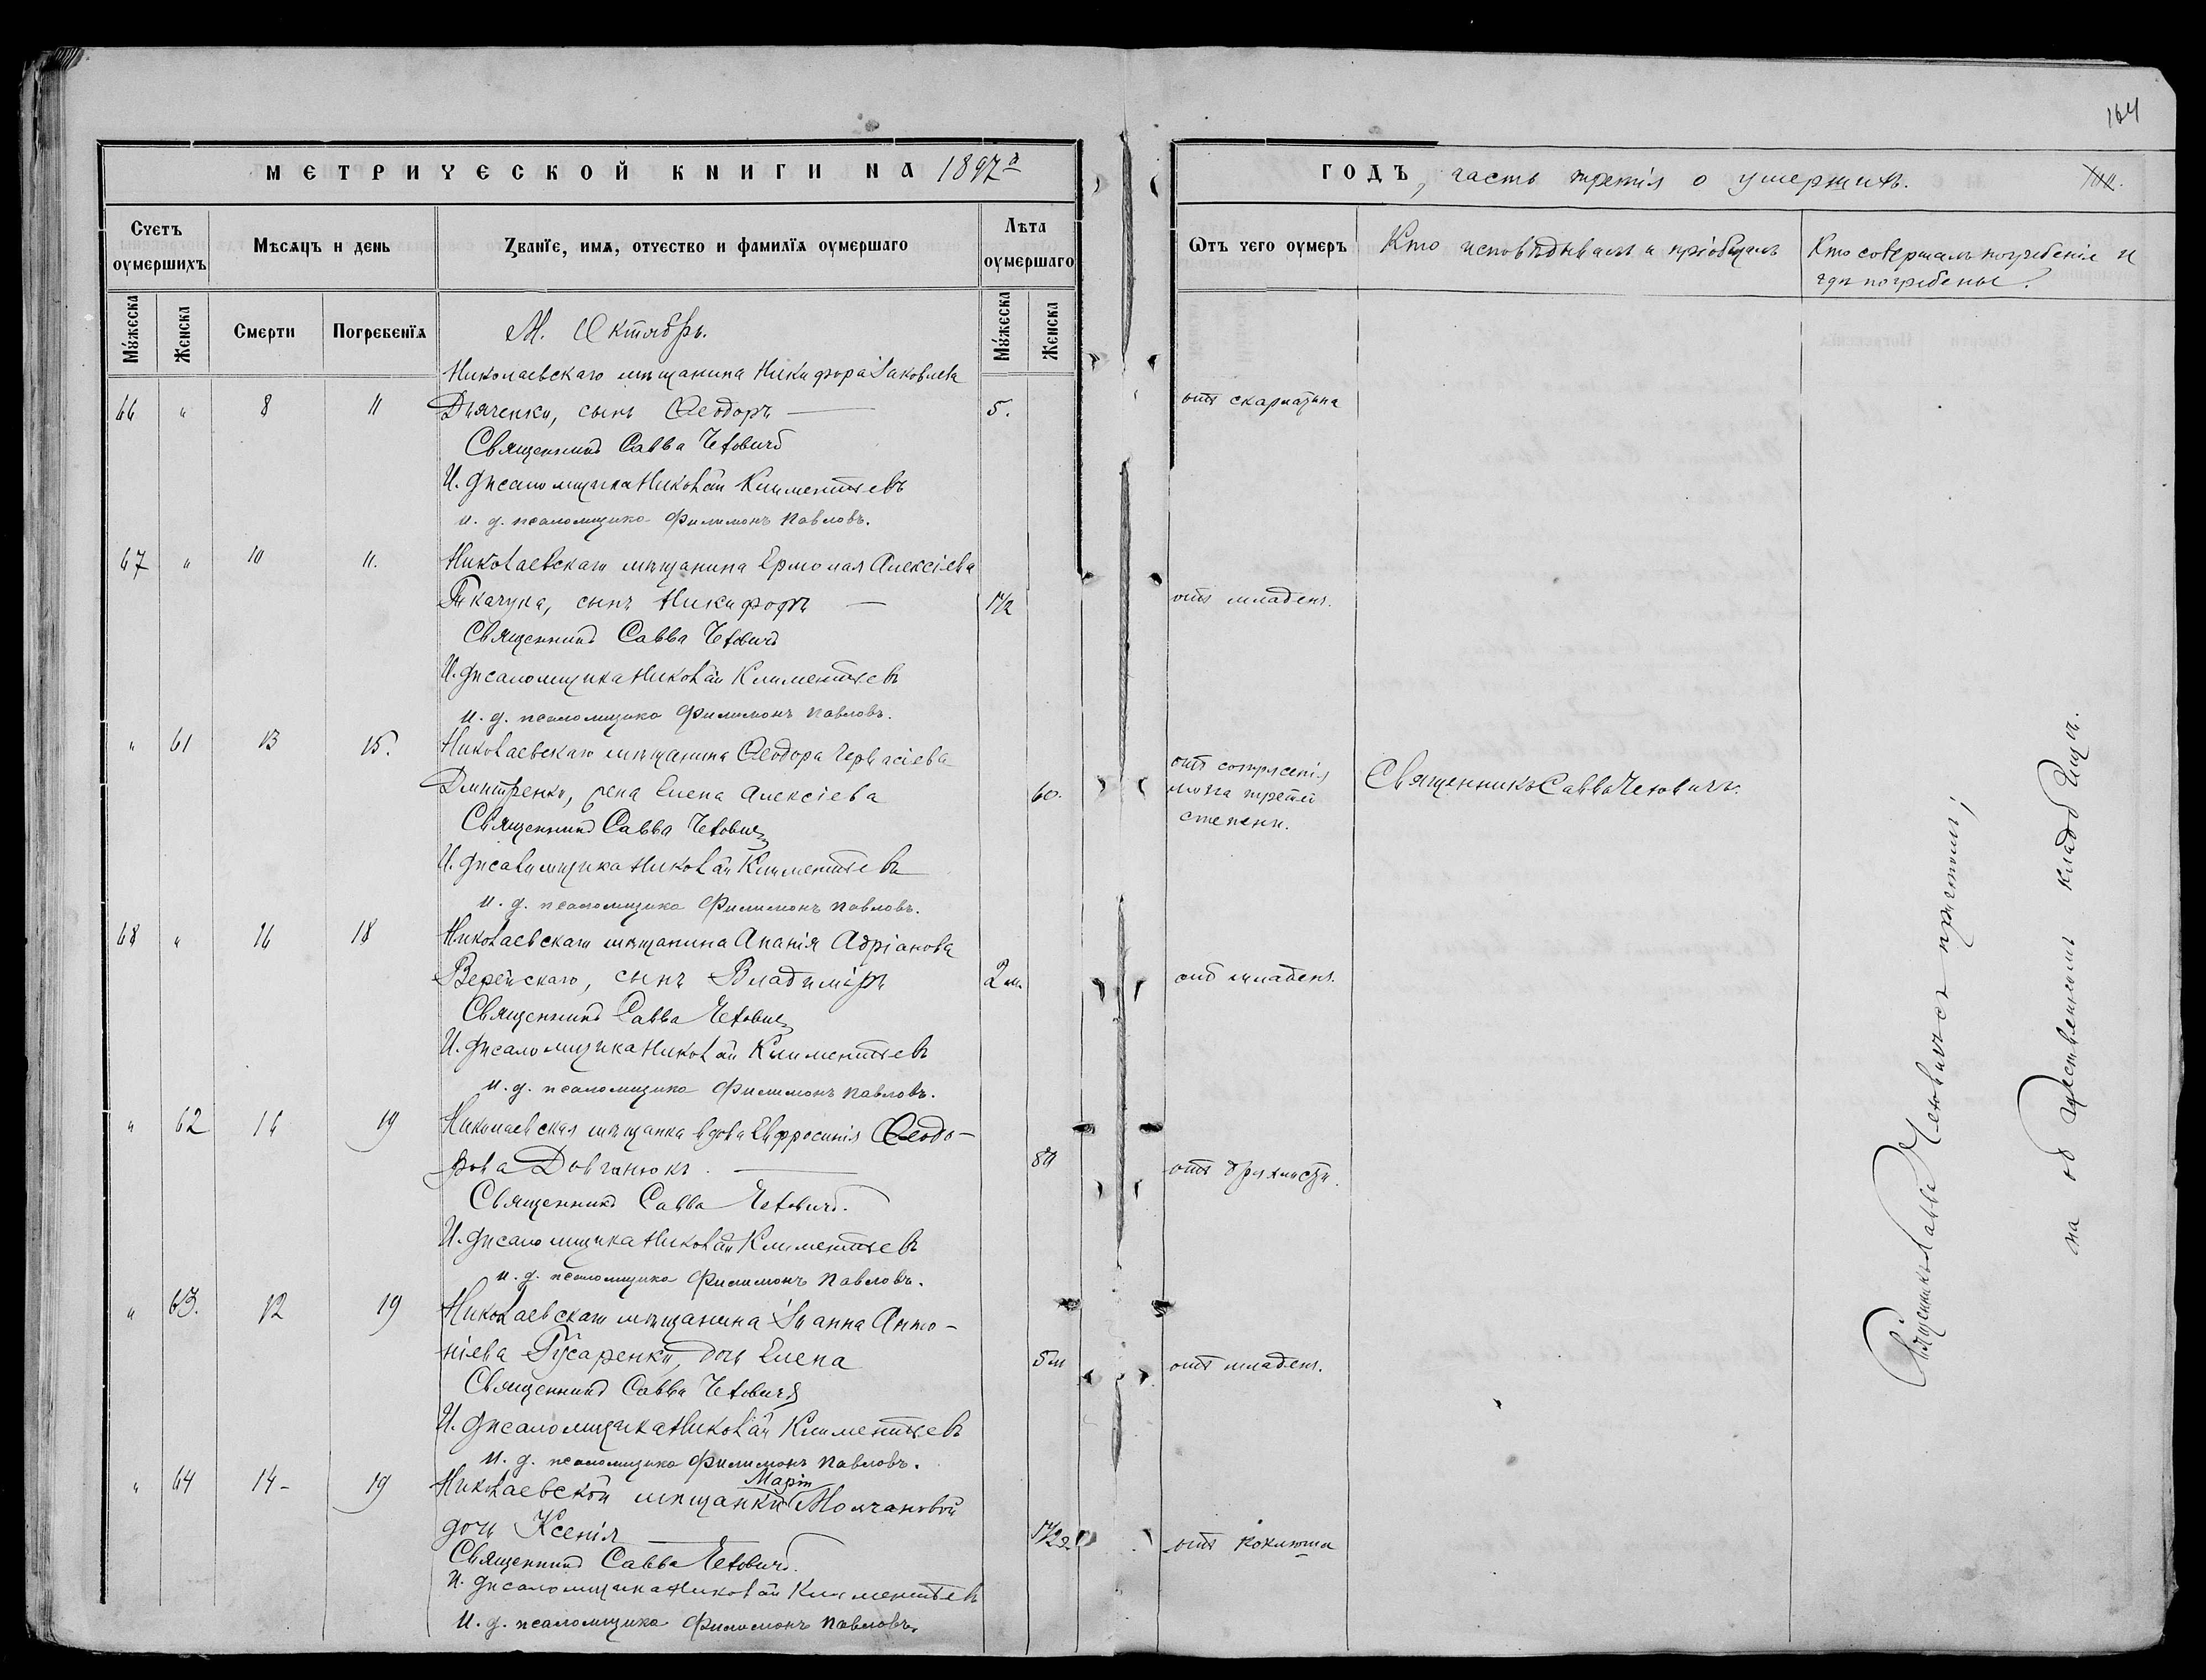 164
МЕТРИЧЕСКОЙ КНИГИ НА 1897й
ГОДЪ, часть третія о умершихъ.
Счетъ оумершихъ
Мѣсяцъ и день
Званїе, имя, отчество и фамилїя оумершаго
Лѣта оумершаго
Отъ чего оумеръ
Кто исповѣдывалъ и пріобщалъ
Кто совершалъ погребеніе и
гдѣ погребены.
Мужеска
Женска
Смерти
Погребенїя
М. Октябрь.
Мужеска
Женска
Николаевскаго мѣщанина Никифора Іаковлева
66 " 8 11 Дьяченки, сынъ Ѳеодоръ — 5. отъ скарлатина
Священникъ Савва Четовичъ
И. д. псаломщика Николай Климентьевъ
и. д. псаломщика Филимонъ Павловъ.
67 " 10 11. Николаевскаго мѣщанина Ермолая Алексіева
Ткачука, сынъ Никифоръ — 1 1/2 отъ младенч.
Священникъ Савва Четовичъ
И. д. псаломщика Николай Климентьевъ
и. д. псаломщика Филимонъ Павловъ.
" 61 13 15. Николаевскаго мѣщанина Ѳеодора Гервасіева
Дмитренко, жена Елена Алексіева 60.
отъ сотрясенія
мозга третей
степени.
Священникъ Савва Четовичъ.
Священникъ Савва Четовичъ
И. д. псаломщика Николай Климентьевъ
и. д. псаломщика Филимонъ Павловъ.
68 " 16 18 Николаевскаго мѣщанина Ананія Адріанова
Верейскаго, сынъ Владиміръ 2 м. отъ младенч.
Священникъ Савва Четовичъ
И. д. псаломщика Николай Климентьевъ
и. д. псаломщика Филимонъ Павловъ.
" 62 16 19 Николаевская мѣщанка вдова Евфросинія Ѳеодо-
рова Довганюкъ. — 80 отъ дряхлости.
Священникъ Савва Четовичъ.
И. д. псаломщика Николай Климентьевъ
и. д. псаломщика Филимонъ Павловъ.
" 63. 12 19 Николаевскаго мѣщанина Іоанна Анто-
ніева Гусаренки, дочь Елена 5 м отъ младенч.
Священникъ Савва Четовичъ
И. д. псаломщика Николай Климентьевъ
и. д. псаломщика Филимонъ Павловъ.
" 64 14 - 19 Николаевской мѣщанки Маріи Молчановой
дочь Ксенія — 1 1/2 отъ коклюша
Священникъ Савва Четовичъ.
И. д. псаломщика Николай Климентьевъ
И. д. псаломщика Филимонъ Павловъ.
Священникъ Савва Четовичъ съ причтомъ,
на общественномъ кладбищѣ.